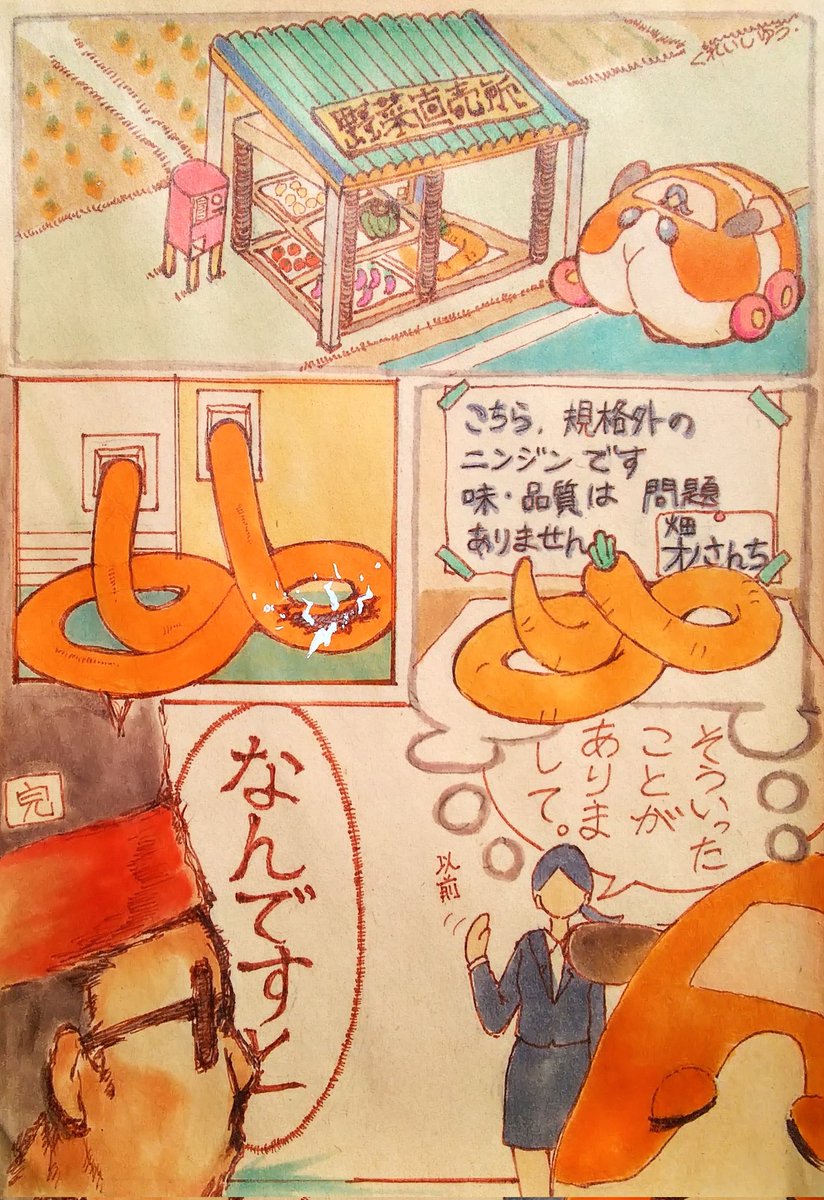 くれいしゅう.
野菜直売所
こちら、規格外の
ニンジンです
味・品質は 問題
ありません
畑
オノさんち
そういった
ことが
ありま
して。
以前
なんですと
完